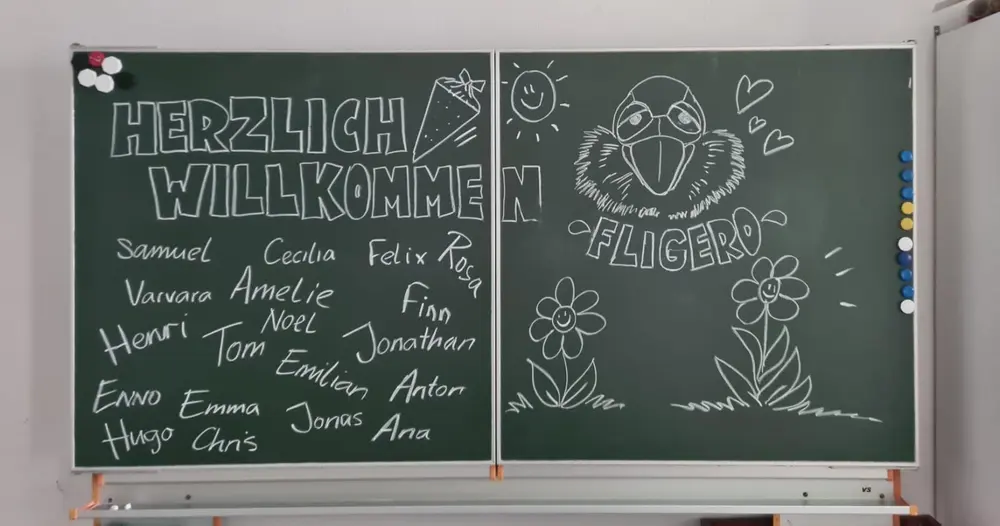 HERZLICH
WILLKOMMEN
FLIGERO
Samuel Cecilia Felix Rosa
Varvara Amelie Finn
Henri Tom Noel Jonathan
Emilian Anton
Enno Emma Jonas
Hugo Chris Ana
vs